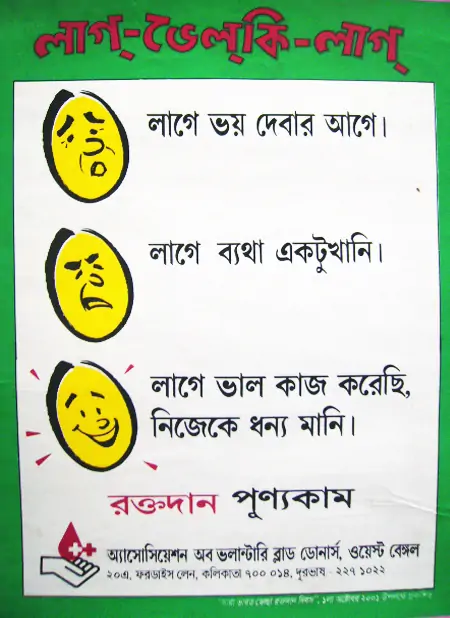 লাগ্-ভেল্‌কি-লাগ্
লাগে ভয় দেবার আগে।
লাগে ব্যথা একটুখানি।
লাগে ভাল কাজ করেছি,
নিজেকে ধন্য মানি।
রক্তদান পূণ্যকাম
অ্যাসোসিয়েশন অব ভলান্টারি ব্লাড ডোনার্স, ওয়েস্ট বেঙ্গল
২০এ, ফরডাইস লেন, কলিকাতা ৭০০ ০১৪, দূরভাষ - ২২৭ ১০২২